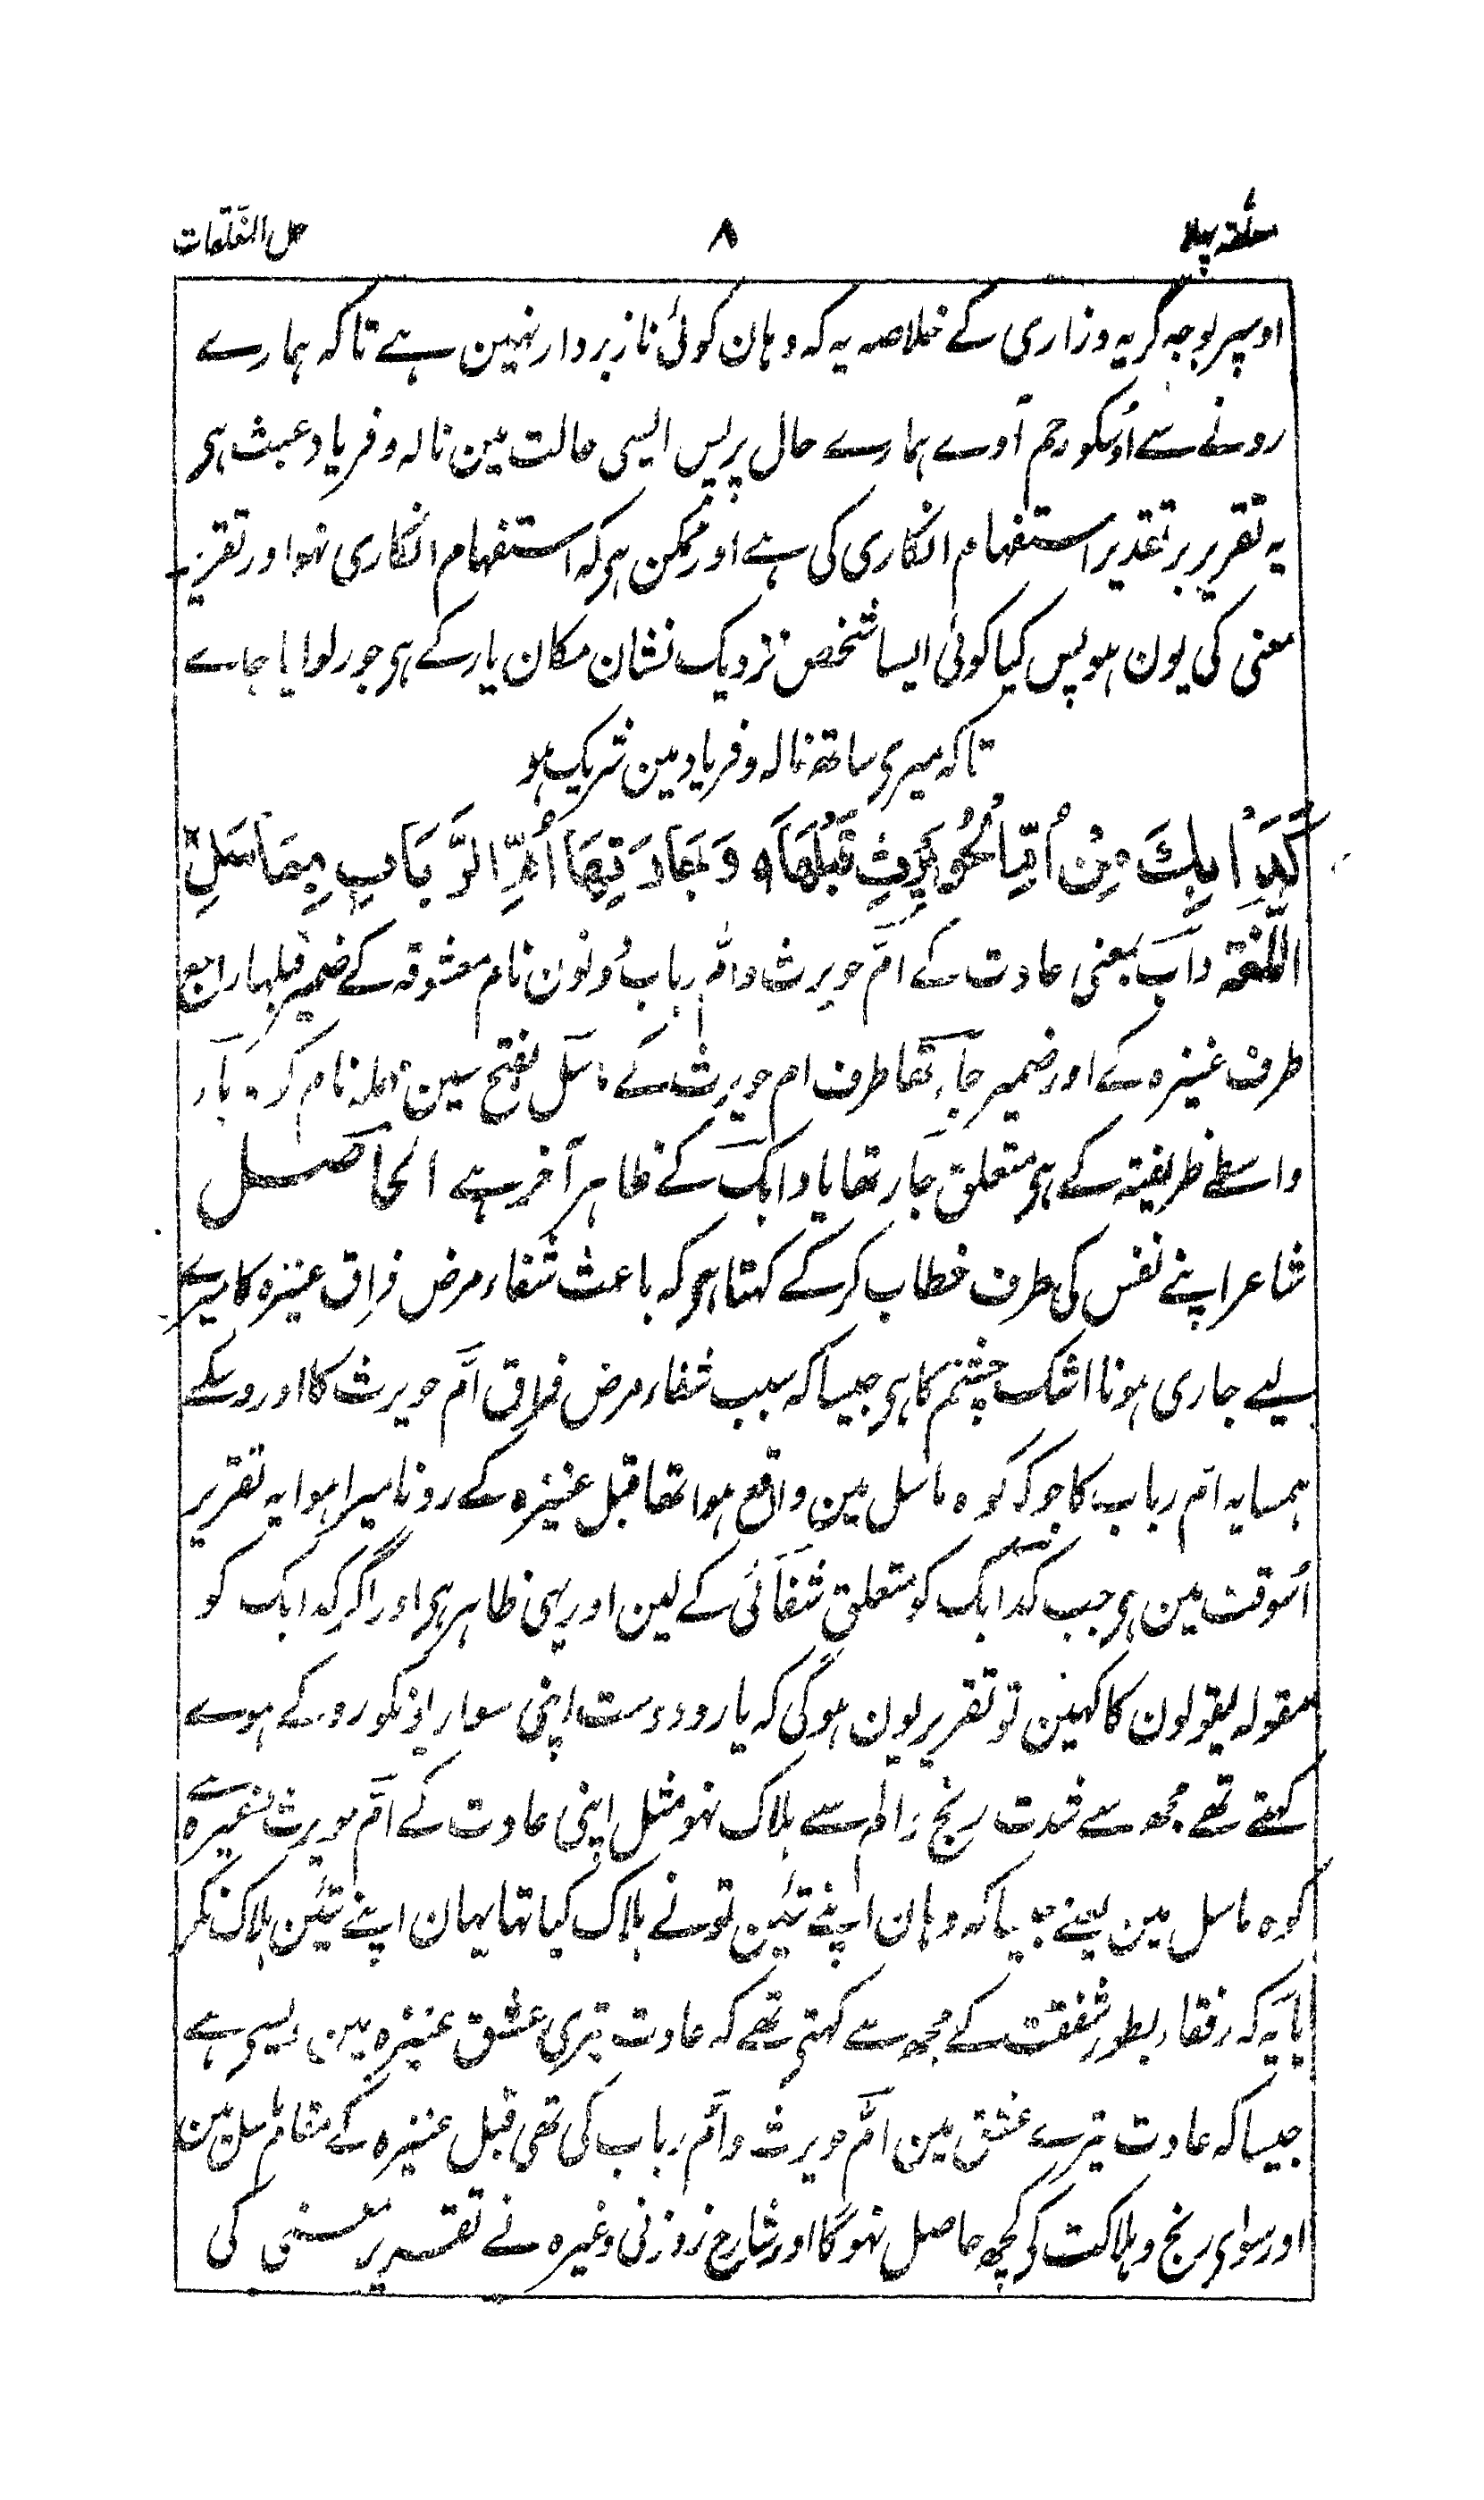 معلقہ پہلا ۸ حل المعلقات
اوسپر بوجہ گریہ وزاری کے خلاصہ یہ کہ وہان کوئی ناز بردار نہین ہے تاکہ ہمارے
رونے سے اُوسکو رحم آوے ہمارے حال پر پس ایسی حالت مین نالہ و فریاد عبث ہی
یہ تقریر بر تقدیر استفہام انکاری کی ہے اور ممکن ہی کہ استفہام انکاری نہو اور تقریر
معنی کی یون ہو پس کیا کوئی ایسا شخص نزدیک نشان مکان یار کے ہی جو رلوایا جاے
تاکہ میری ساتھ نالہ و فریاد مین شریک ہو
كَدَأْبِكَ مِنْ أُمِّ الْحُوَيْرِثِ قَبْلَهَا ۞ وَجَارَتِهَا أُمِّ الرَّبَابِ بِمَأْسَلِ
اللّغة دأب بمعنی عادت کے امّ حویرث وامّ رباب دونون نام معشوقہ کے ضمیر قبلہا راجع
طرف عنیزہ کے اور ضمیر جارتہا طرف ام حویرث کے ماسل بفتح سین مہملہ نام کوہ باء
واسطے ظرفیتہ کے ہی متعلق جارتہا یا دابک کے ظاہر آخر ہے الحاصل
شاعر اپنے نفس کی طرف خطاب کرکے کہتا ہی کہ باعث شفاء مرض فراق عنیزہ کا میرے
لیے جاری ہونا اشک چشم کا ہی جیسا کہ سبب شفاء مرض فراق امّ حویرث کا اور اوسکے
ہمسایہ امّ رباب کا جو کہ کوہ ماسل مین واقع ہوا تھا قبل عنیزہ کے رونا میرا ہوا یہ تقریر
اُسوقت مین ہی جب کدابک کو متعلق شفائی کے لین اور یہی ظاہر ہی اور اگر کدابک کو
مقولہ یقولون کا کہین تو تقریر یون ہوگی کہ یار و دوست اپنی سواریونکو روکے ہوے
کہتے تھے مجھ سے شدت رنج و الم سے ہلاک نہو مثل اپنی عادت کے امّ حویرث وغیرہ سے
کوہ ماسل مین یعنے جیساکہ وہان اپنے تئین تونے ہلاک کیا تہا یہان اپنے تئین ہلاک نکر
یا یہ کہ رفقاء بطور شفقت کے مجھ سے کہتی تھے کہ عادت تیری عشق عنیزہ مین ویسی ہے
جیسا کہ عادت تیرے عشق مین امّ حویرث و امّ رباب کی تھی قبل عنیزہ کے مقام ماسل مین
اور سوای رنج و ہلاکت کی کچھ حاصل نہوگا اور شارح زوزنی وغیرہ نے تقریر معنی کی